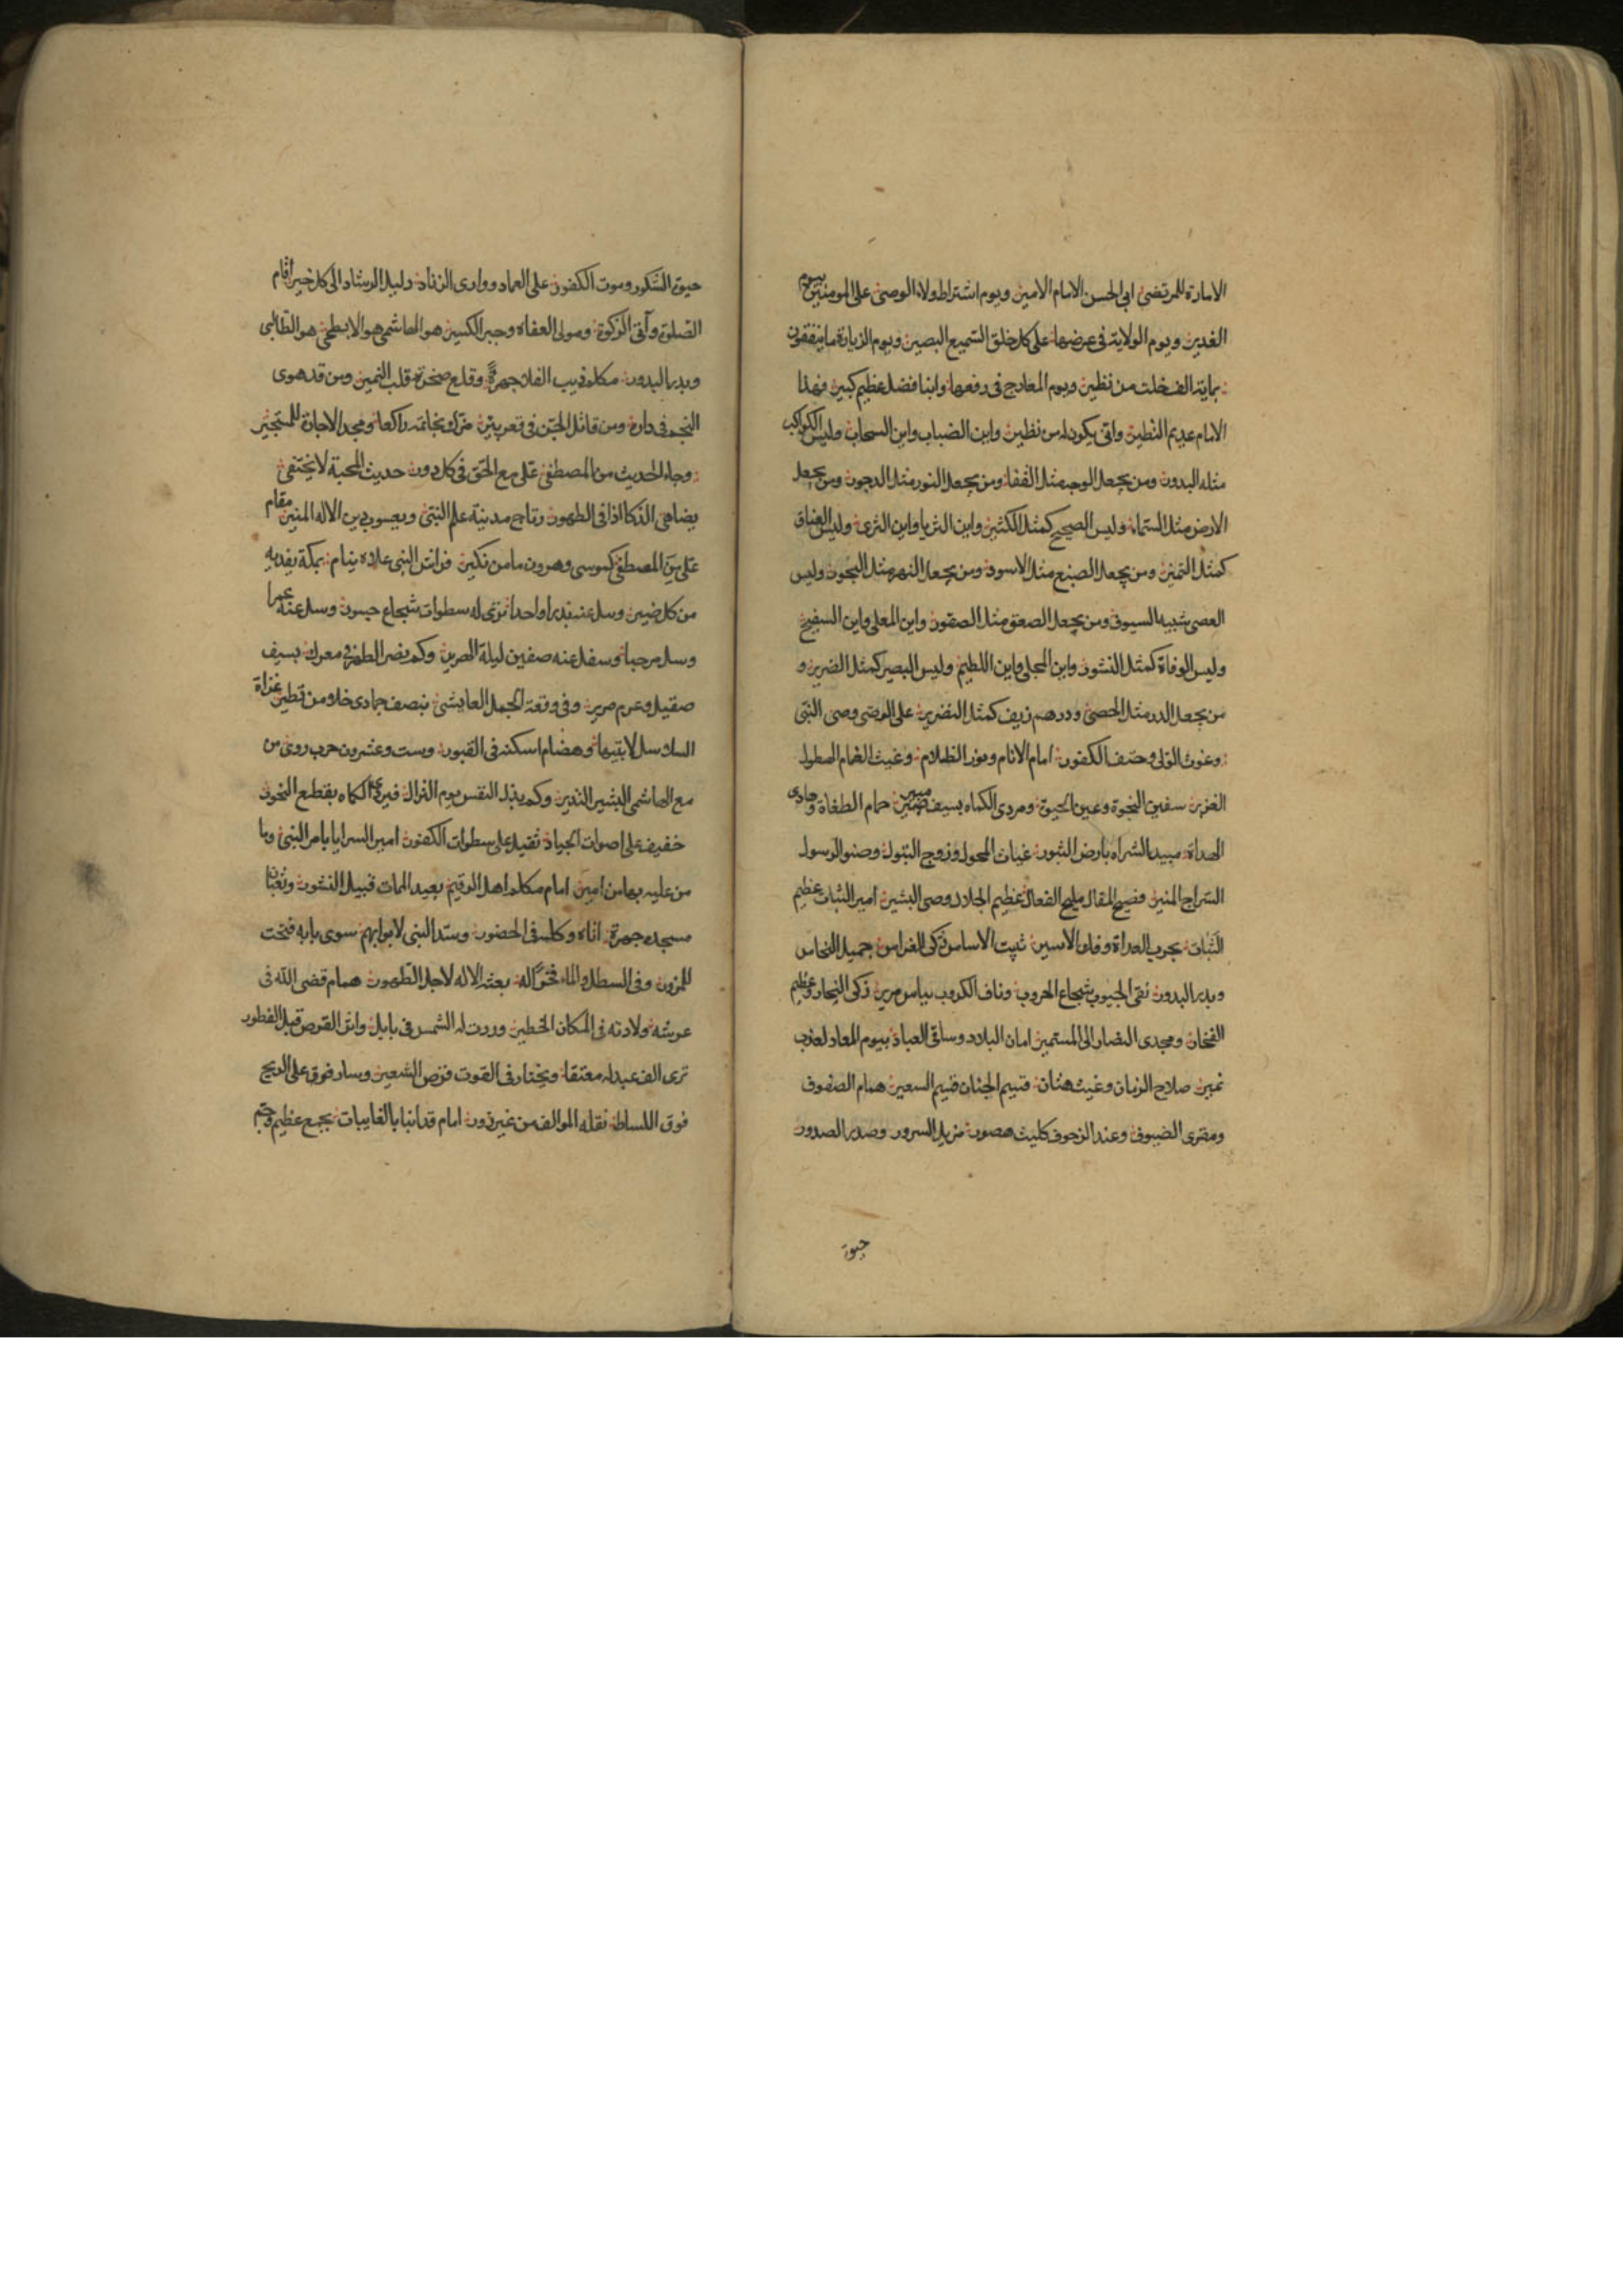 الامارة للمرتضى ابى الحسن الامام الامين ويوم اشتراط ولاء الوصى على المومنين بيوم
الغدير ويوم الولاية فى عرضها على كل خلق السميع البصير ويوم الزيارة ما ينفقون
بماية الف خلت من نظير ويوم المعارج فى رفعها وابنا فضل عظيم كبير فهذا
الامام عديم النظير وانى يكون له من نظير واين الضباب واين السحاب وليس الكواكب
مثله البدور ومن يجعل الوجه مثل القفا ومن يجعل النور مثل الدجور ومن يجعل
الارض مثل السماء وليس الصحيح كمثل الكثير واين الثريا واين الثرى وليس العناق
كمثل النمير ومن يجعل الضبع مثل الاسود ومن يجعل النهر مثل البحور وليس
العصى شبيه السيوف ومن يجعل الصعق مثل الصقور واين المعلى واين السفيح
وليس الوفاة كمثل النشور واين المجلى واين اللطيم وليس البصير كمثل الضرير و
من يجعل الدر مثل الحصى ودرهم زيف كمثل النضير على الوصى وصى النبى
وغوث الولى وحتف الكفور امام الانام ونور الظلام وغيث الغمام الهطول
الغزير سفين النجوة وعين الحيوة ومردى الكماه بسيف مبير حمام الطغاة وهادى
الهداة مبيد الشراه بارض الثبور غياث المحول وزوج البتول وصنو الرسول
السراج المنير فصيح المقال مليح الفعال عظيم الجلال وصى البشير امير الثبات عظيم
الثبات بحرب العداة وفك الاسير ثبيت الاساس زكى الغراس جميل النحاس
وبدر البدور نقى الجيوب شجاع الحروب وناف الكروب بباس مرير زكى النجار وعظيم
الفخار ومجدى النضار الى المستمير امان البلاد وساقى العباد بيوم المعاد لعذب
نمير صلاح الزمان وغيث هتان قسيم الجنان قسيم السعير همام الصفوف
ومقرى الضيوف وعند الزحوف كليث هصور مزيل السرور وصدر الصدور
حيوة
حيوة الشكور وموت الكفور على العماد ووارى الزناد دليل الرشاد الى كل خير اقام
الصلوة وآتى الزكوة ومولى العفاه وجبر الكسير هو الهاشمى هو الابطحى هو الطالبى
وبدر البدور مكلم ذيب الفلا جهرة وقلع صخرة قلب النمير ومن قد هوى
النجم فى داره ومن قاتل الجن فى قعر بير مزك بخاتمه راكعا ومجد الاجارة للمستجير
وجاء الحديث من المصطفى على مع الحق فى كل دور حديث المحبة لا يختفى
يضاهى الذكا اذا فى الظهور رتاج مدينة علم النبى ويعسوب دين الاله المنير مقام
على من المصطفى كموسى وهرون ما من نكير فراش النبى علاه ينام بمكة يفديه
من كل ضير وسل عنه بدرا واحدا ترى له سطوات شجاع جسور وسل عنه عمرا
وسل مرحبا وسفل عنه صفين ليلة الهرير وكم نصر الطهر فى معرك بسيف
صقيل وعرم مرير وفى وقعة الجمل العايشى بنصف جمادى خلا من قطير غزاة
السلاسل لابقيها وهضام اسكنه فى القبور وست وعشرون حرب روى من
مع الهاشمى البشير النذير وكم يذبل النفس يوم النزال فيردى الكماه بقطع النحور
خفيف على اصوات الجياد ثقيل على سطوات الكفور امير السرايا بامر النبى وما
من عليه بها من امير امام مكلم اهل الرقيم بعيد الممات قبيل النشور وثعبان
مسجده جهرة اتاه وكلمه فى الحضور وسد النبى لابوابهم سوى بابه فتحت
للمرور وفى السطل والماء فخر له بعثه الاله لاجل الطهور همام قضى الله فى
عرشه ولادته فى المكان الخطير وردت له الشمس فى بابل واثر القرص قبل الفطور
ترى الف عبد له معتقا ويختار فى القوت قرص الشعير وسار فوق على الريح
فوق البساط نقله الموالف من غير زور امام قد انبا بالغايبات بجمع عظيم وجم